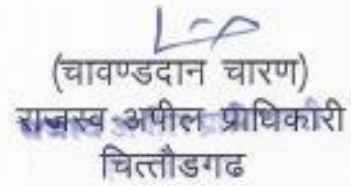 (चावण्डदान चारण)
राजस्व अपील प्राधिकारी
चित्तौडगढ